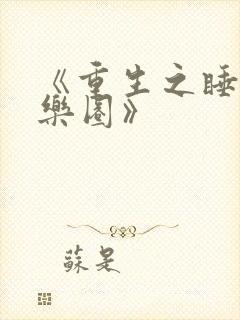 《重生之睡
樂園》
蘇是